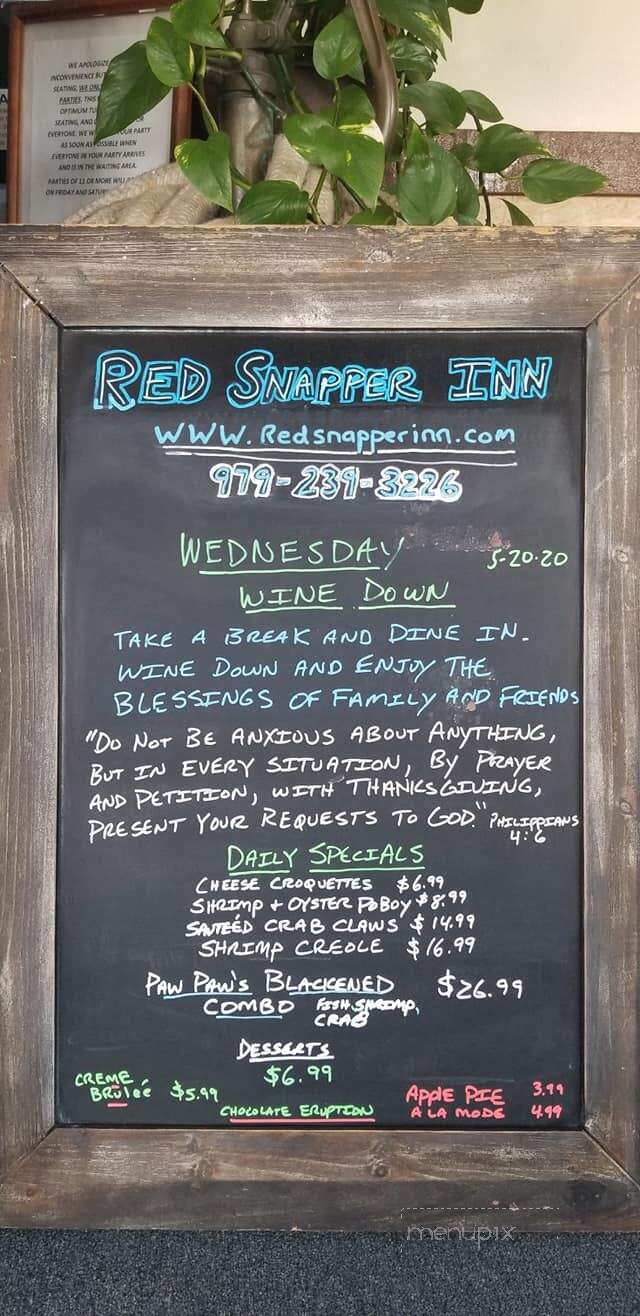 WE APOLOGIZE
INCONVENIENCE BUT
SEATING, WE ONLY
PARTIES. THIS
OPTIMUM
SEATING, AND
EVERYONE. WE OUR PARTY
AS SOON AS POSSIBLE WHEN
EVERYONE IN YOUR PARTY ARRIVES
AND IS IN THE WAITING AREA.
PARTIES OF 11 OR MORE WILL
ON FRIDAY AND
RED SNAPPER INN
WWW.Redsnapperinn.com
979-239-3226
WEDNESDAY 5-20-20
WINE DOWN
TAKE A BREAK AND DINE IN.
WINE DOWN AND ENJOY THE
BLESSINGS OF FAMILY AND FRIENDS
"DO NOT BE ANXIOUS ABOUT ANYTHING,
BUT IN EVERY SITUATION, BY PRAYER
AND PETITION, WITH THANKSGIVING,
PRESENT YOUR REQUESTS TO GOD." PHILIPPIANS
4:6
DAILY SPECIALS
CHEESE CROQUETTES $6.99
SHRIMP + OYSTER POBOY $8.99
SAUTEÉD CRAB CLAWS $14.99
SHRIMP CREOLE $16.99
PAW PAW'S BLACKENED $26.99
COMBO FISH, SHRIMP,
CRAB
DESSERTS
$6.99
CREME
BRULEÉ $5.99
CHOCOLATE ERUPTION
APPLE PIE 3.99
A LA MODE 4.99
menupix